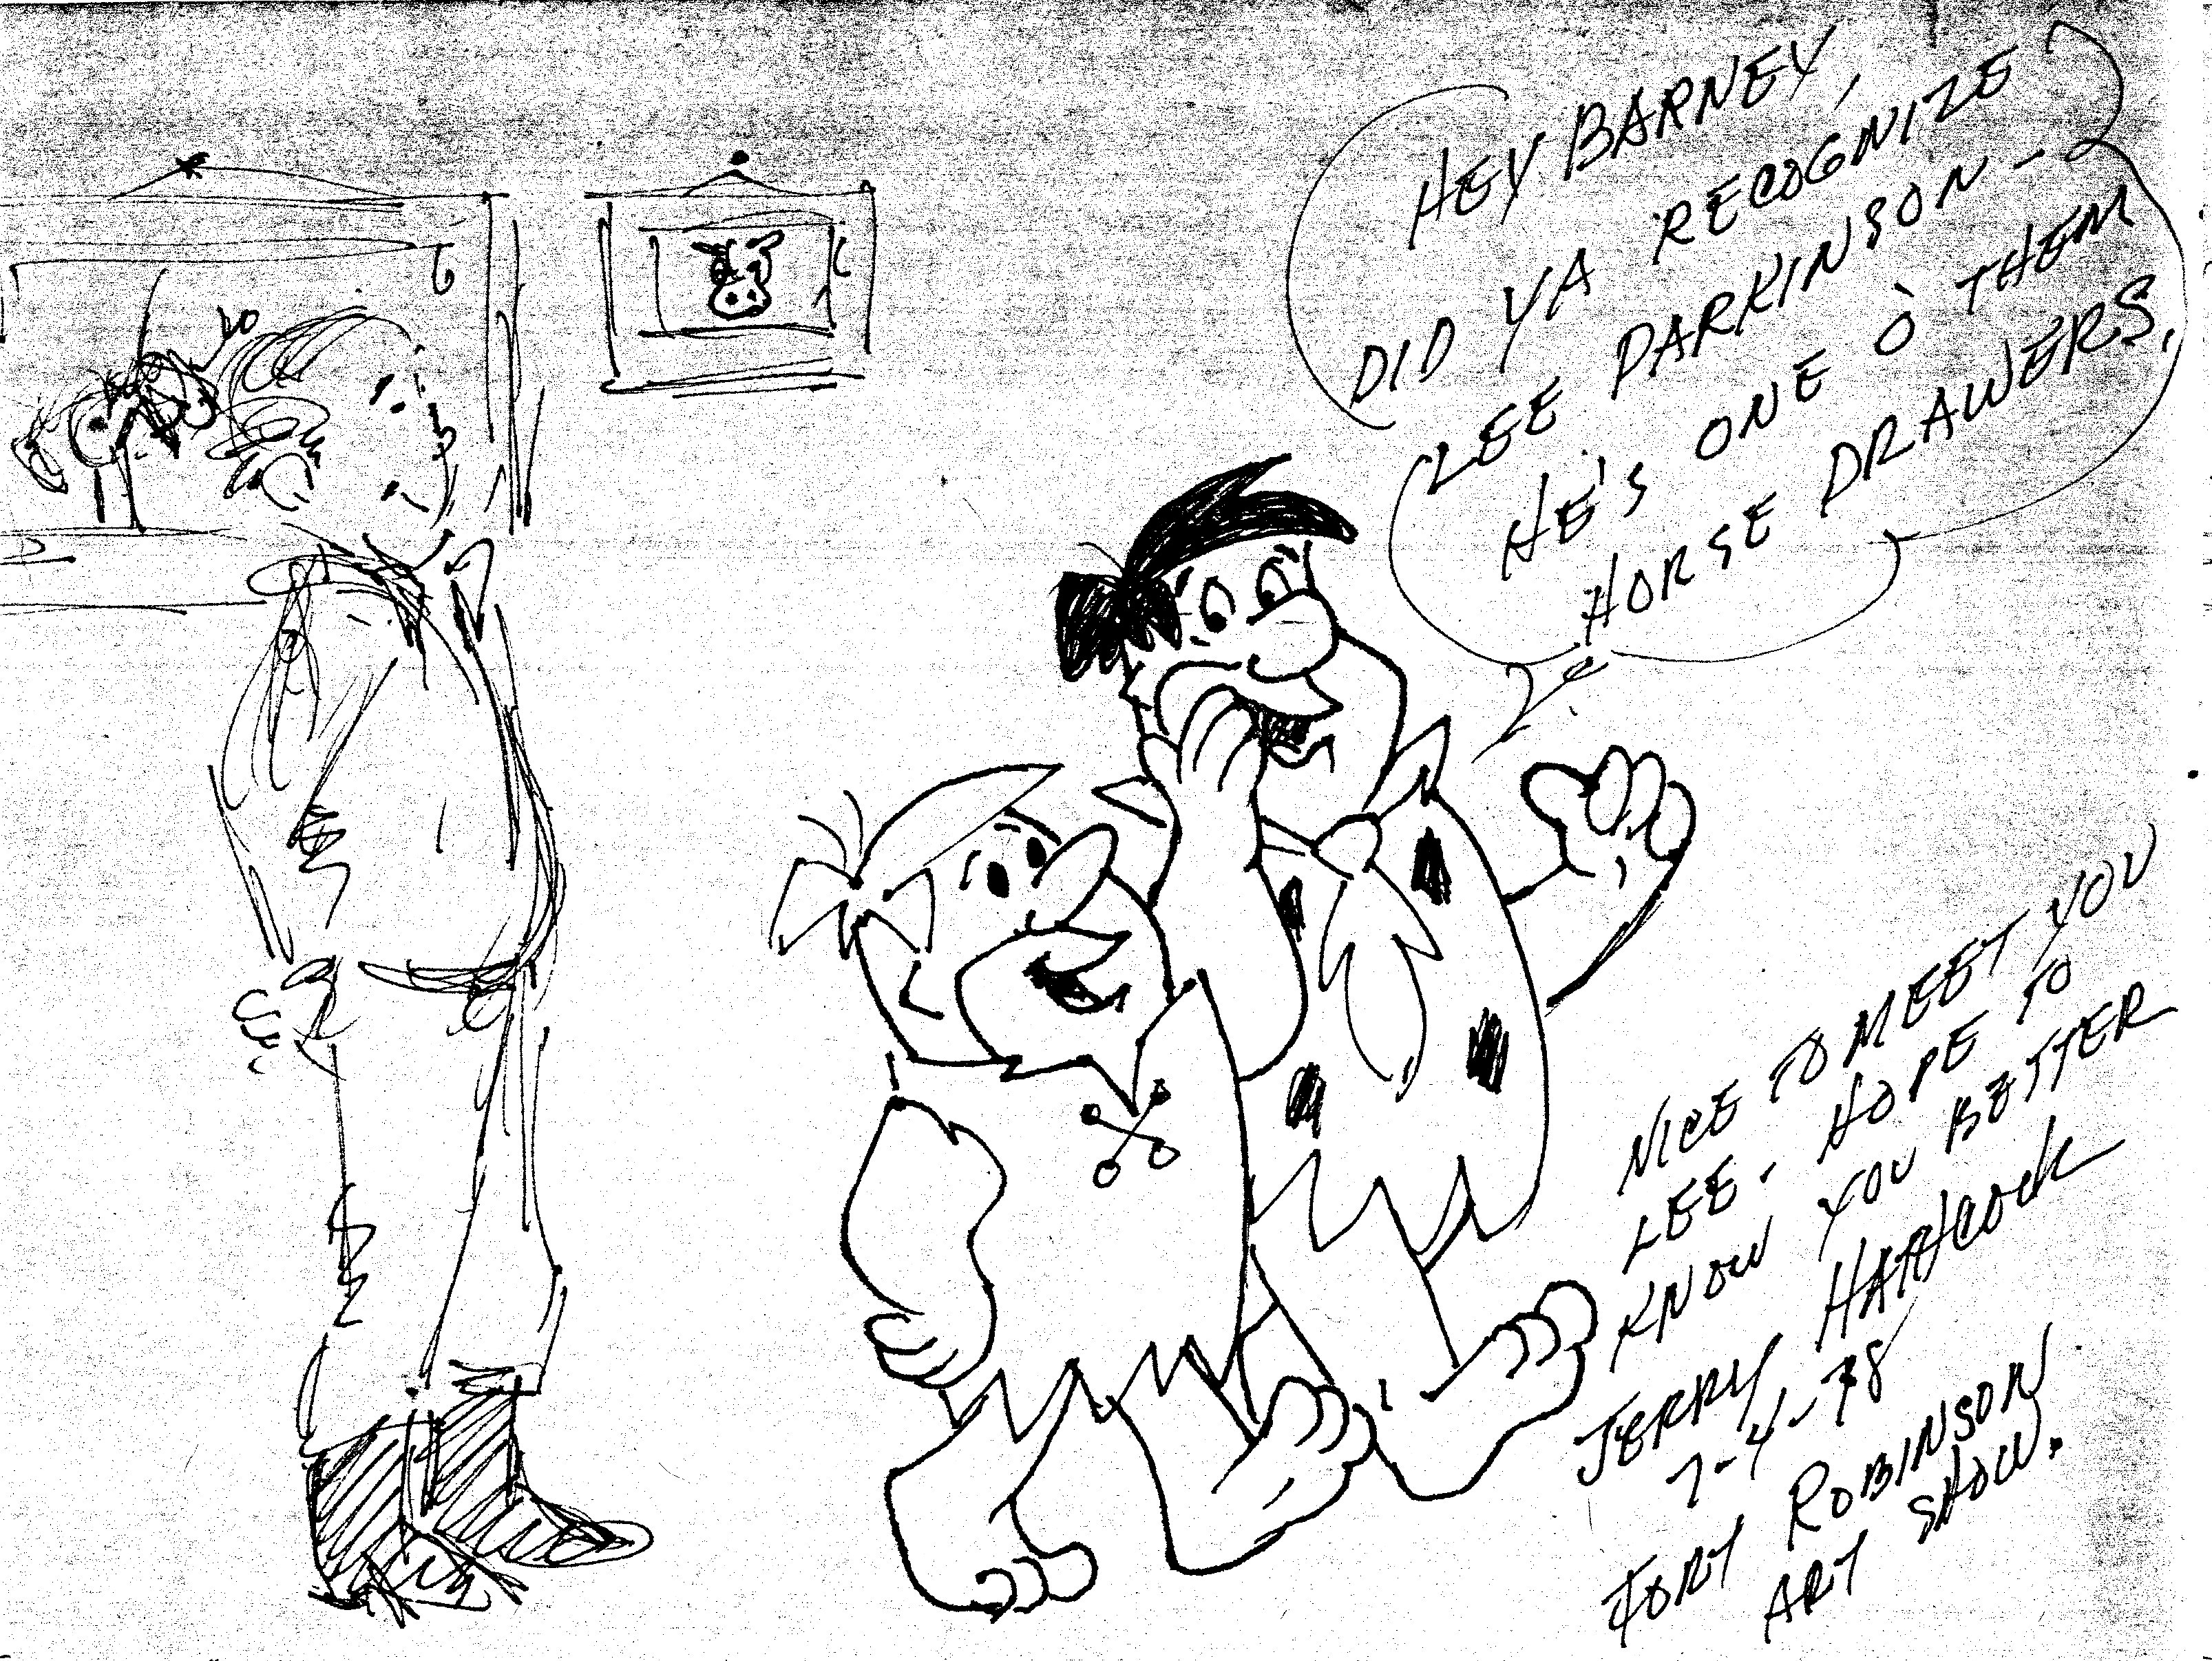 HEY BARNEY,
DID YA RECOGNIZE
LEE PARKINSON -
HE'S ONE O' THEM
HORSE DRAWERS.
NICE TO MEET YOU
LEE - HOPE TO
KNOW YOU BETTER
JERRY HATHCOCK
7-4-78
FORT ROBINSON
ART SHOW.